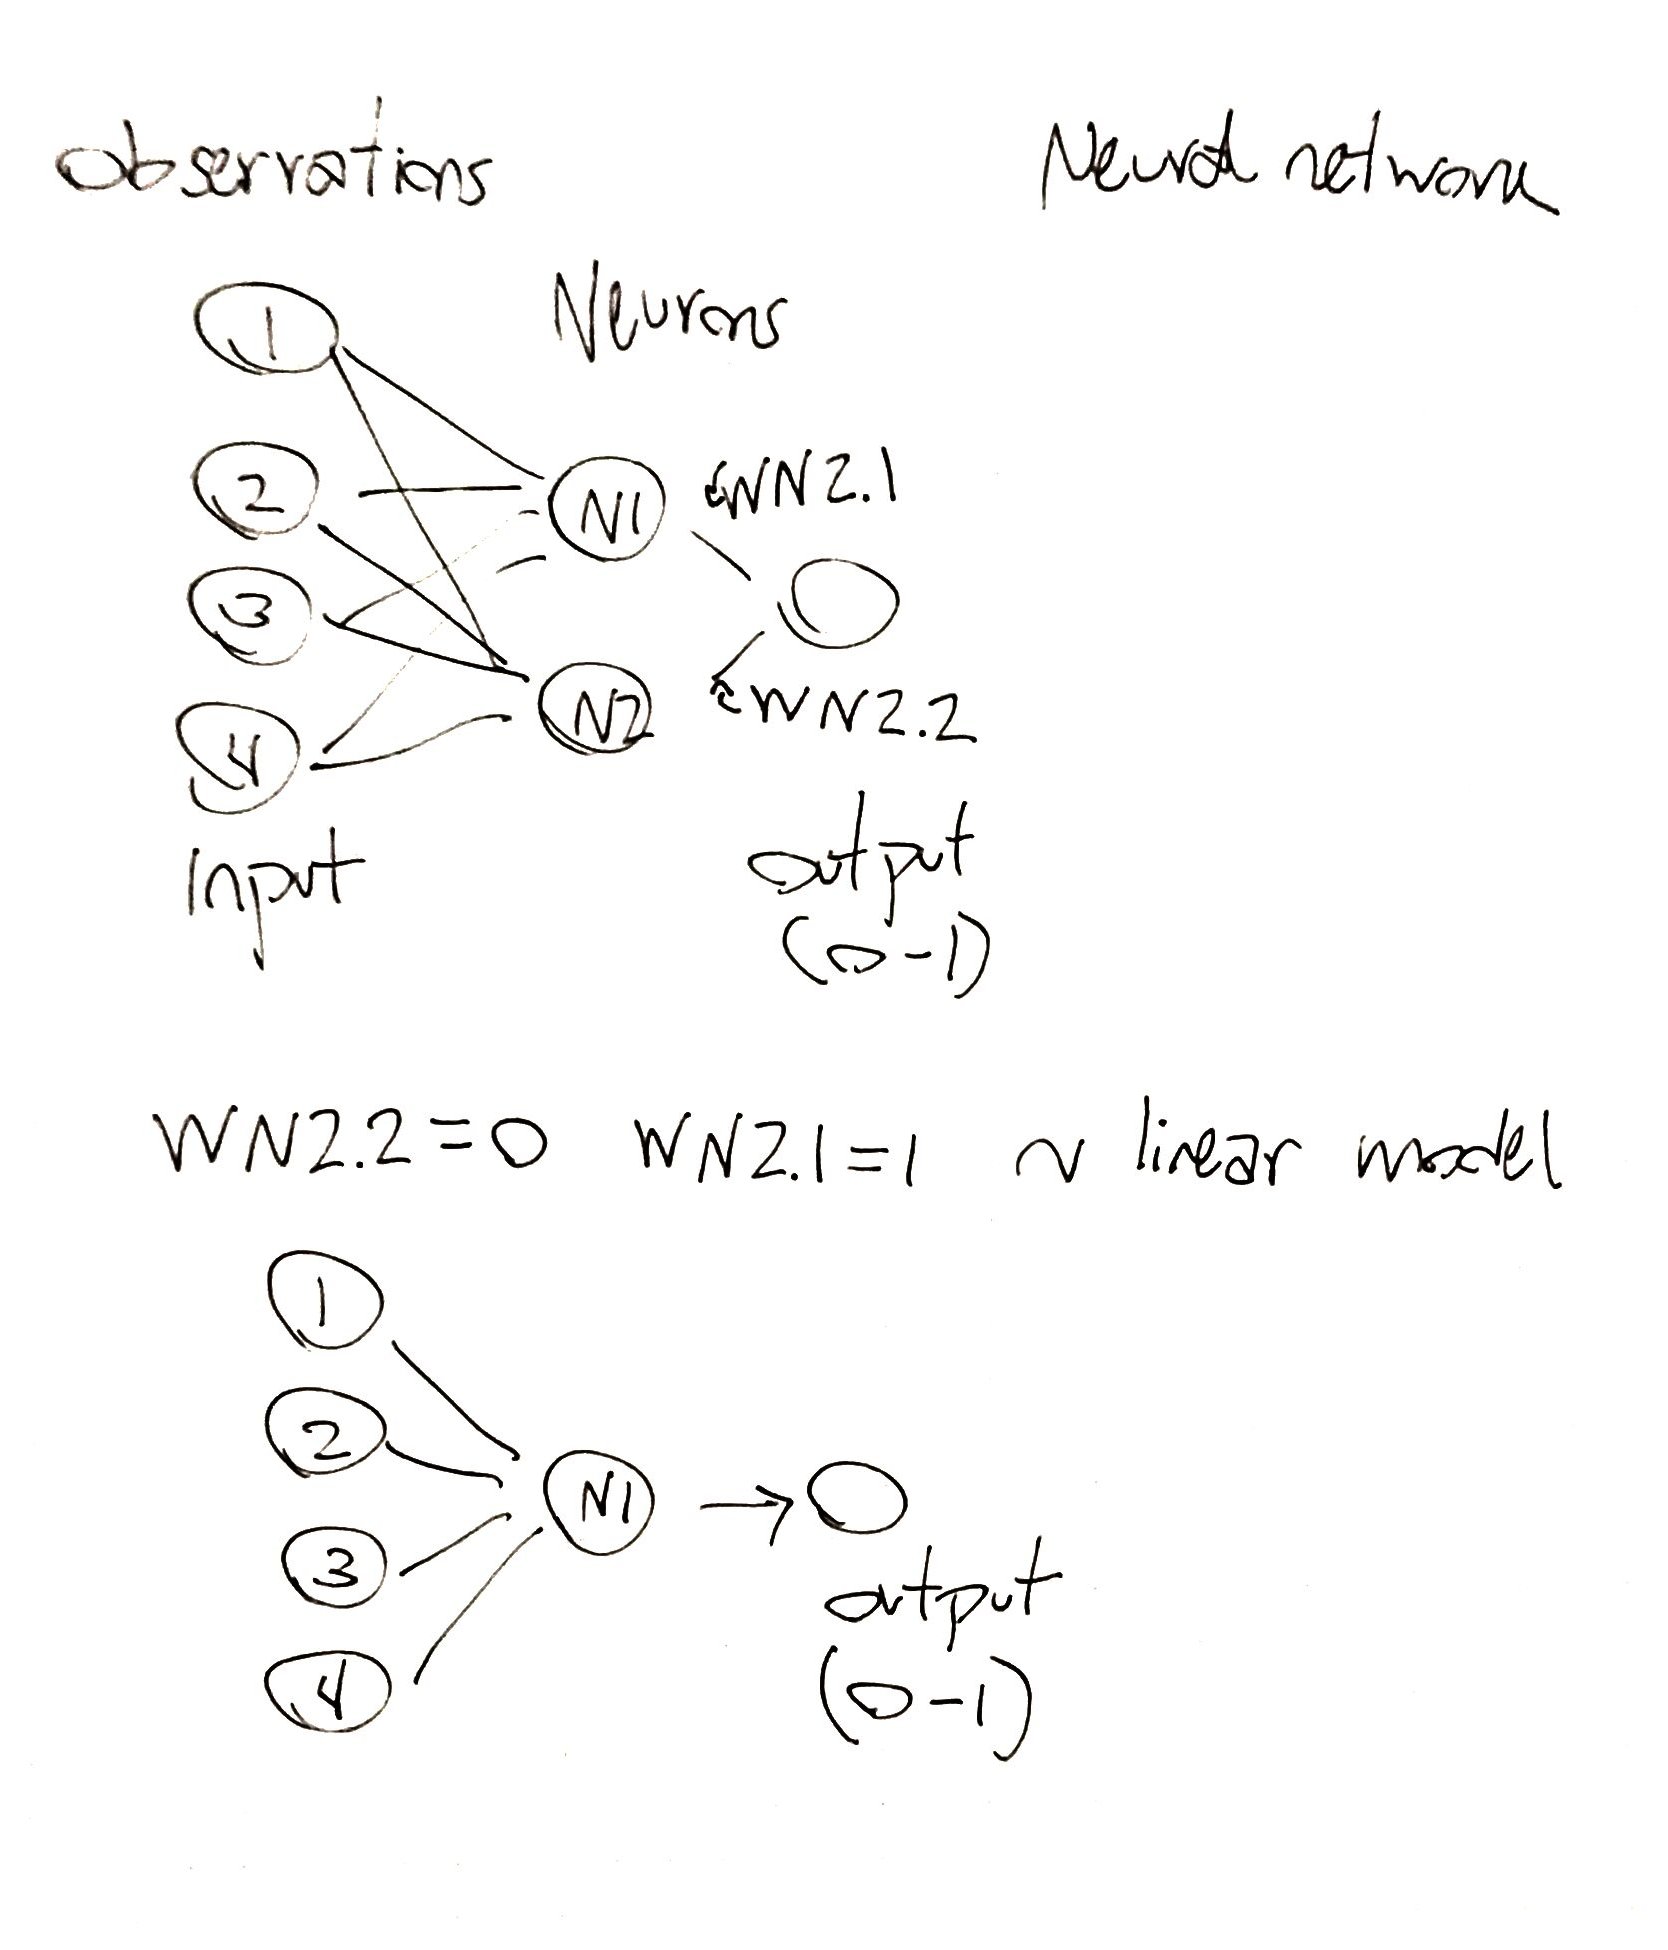 observations Neural network
Neurons
1
2
3
4
N1
WN2.1
N2
WN2.2
input
output
(0-1)
WN2.2=0 WN2.1=1 ~ linear model
1
2
3
4
N1
output
(0-1)